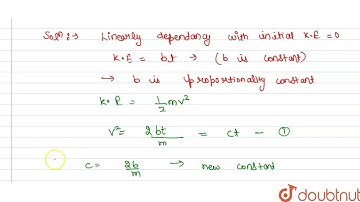 Solⁿ :→ Linearly dependancy with initial K.E = 0
K.E = bt → (b is constant)
→ b is proportionality constant
K.E = 1/2 mv²
v² = 2bt/m = ct — ①
c = 2b/m → new constant
doubtnut